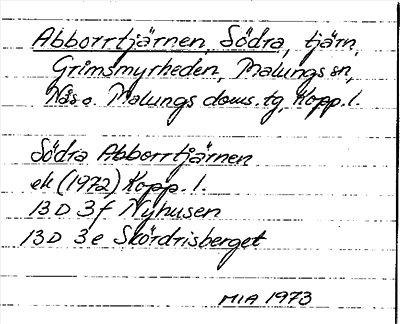 Abborrtjärnen, Södra, tjärn,
Grimsmyrheden, Malungs sn,
Nås o. Malungs doms. tg, Kopp. l.
Södra Abborrtjärnen
ek (1972) Kopp. l.
13 D 3 f Nyhusen
13 D 3 e Skördrisberget
MIA 1973